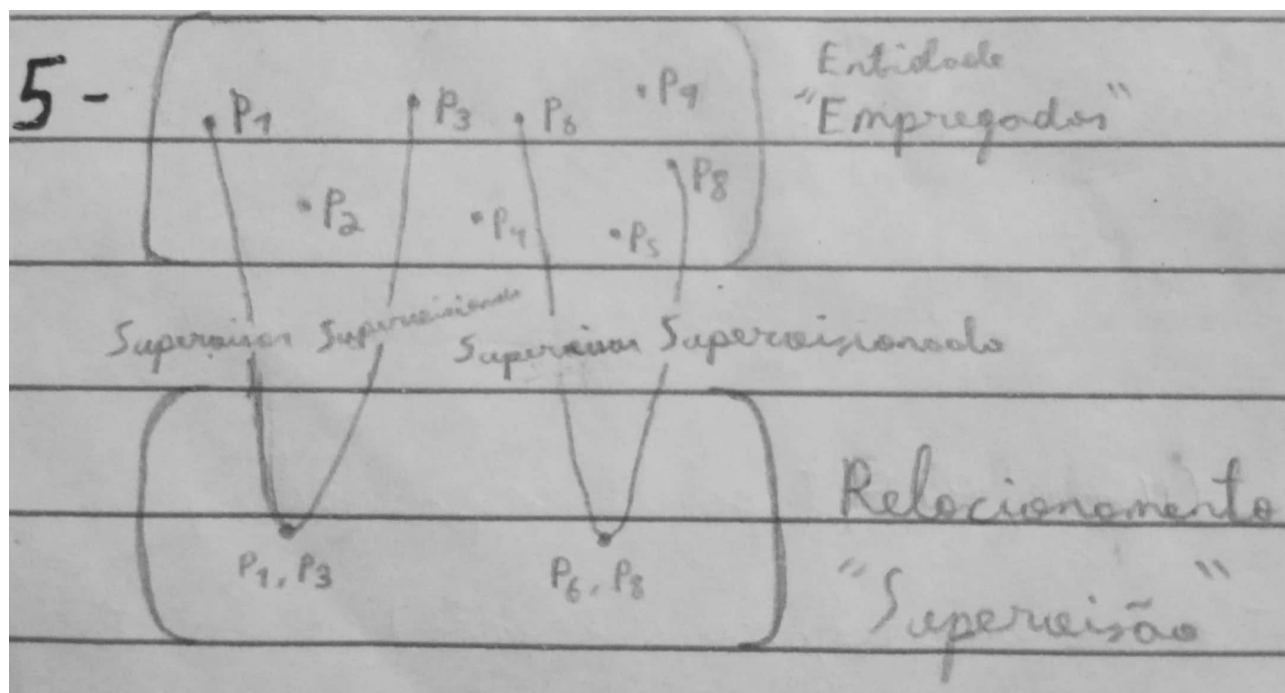 5-
P1 P3 P6 P9
P2 P4 P5 P8
Entidade
"Empregados"
Supervisor Supervisionado Supervisor Supervisionado
P1, P3 P6, P8
Relacionamento
"Supervisão"